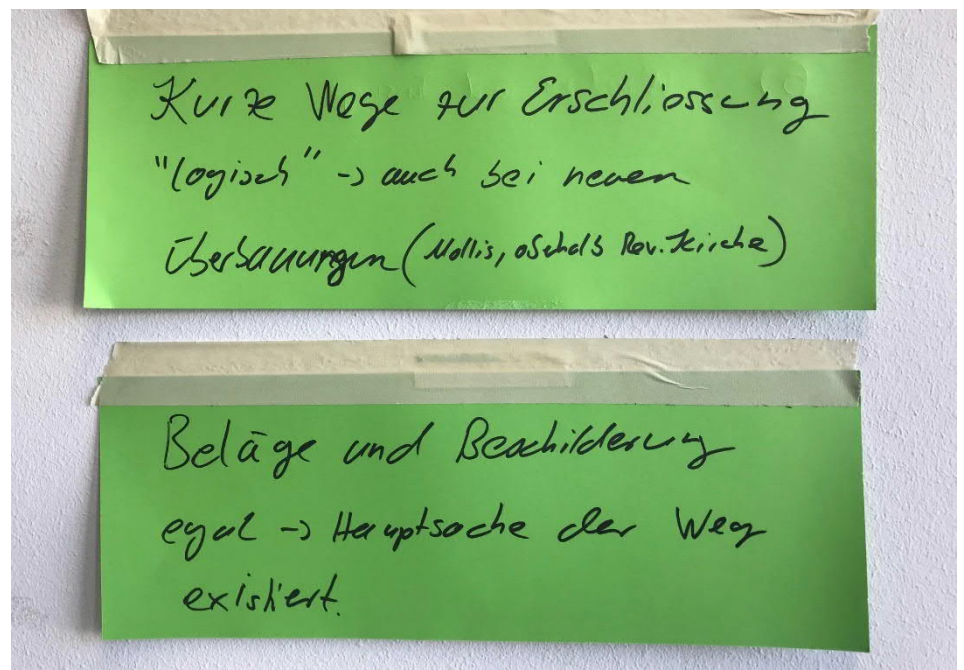 Kurze Wege zur Erschliessung
"logisch" -> auch bei neuen
Überbauungen (Mollis, oberhalb Rev. Kirche)
Beläge und Beschilderung
egal -> Hauptsache der Weg
existiert.